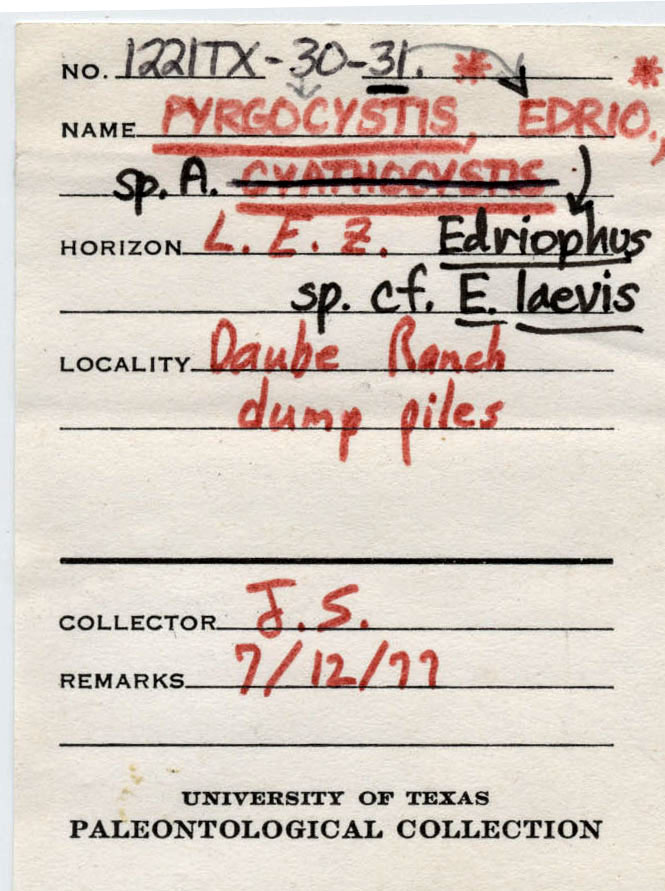 NO. 1221TX-30-31. * *
NAME PYRGOCYSTIS, EDRIO.,
sp. A. CYATHOCYSTIS
HORIZON L. E. Z. Edriophus
sp. cf. E. laevis
LOCALITY Daube Ranch
dump piles
COLLECTOR J.S.
REMARKS 7/12/77
UNIVERSITY OF TEXAS
PALEONTOLOGICAL COLLECTION